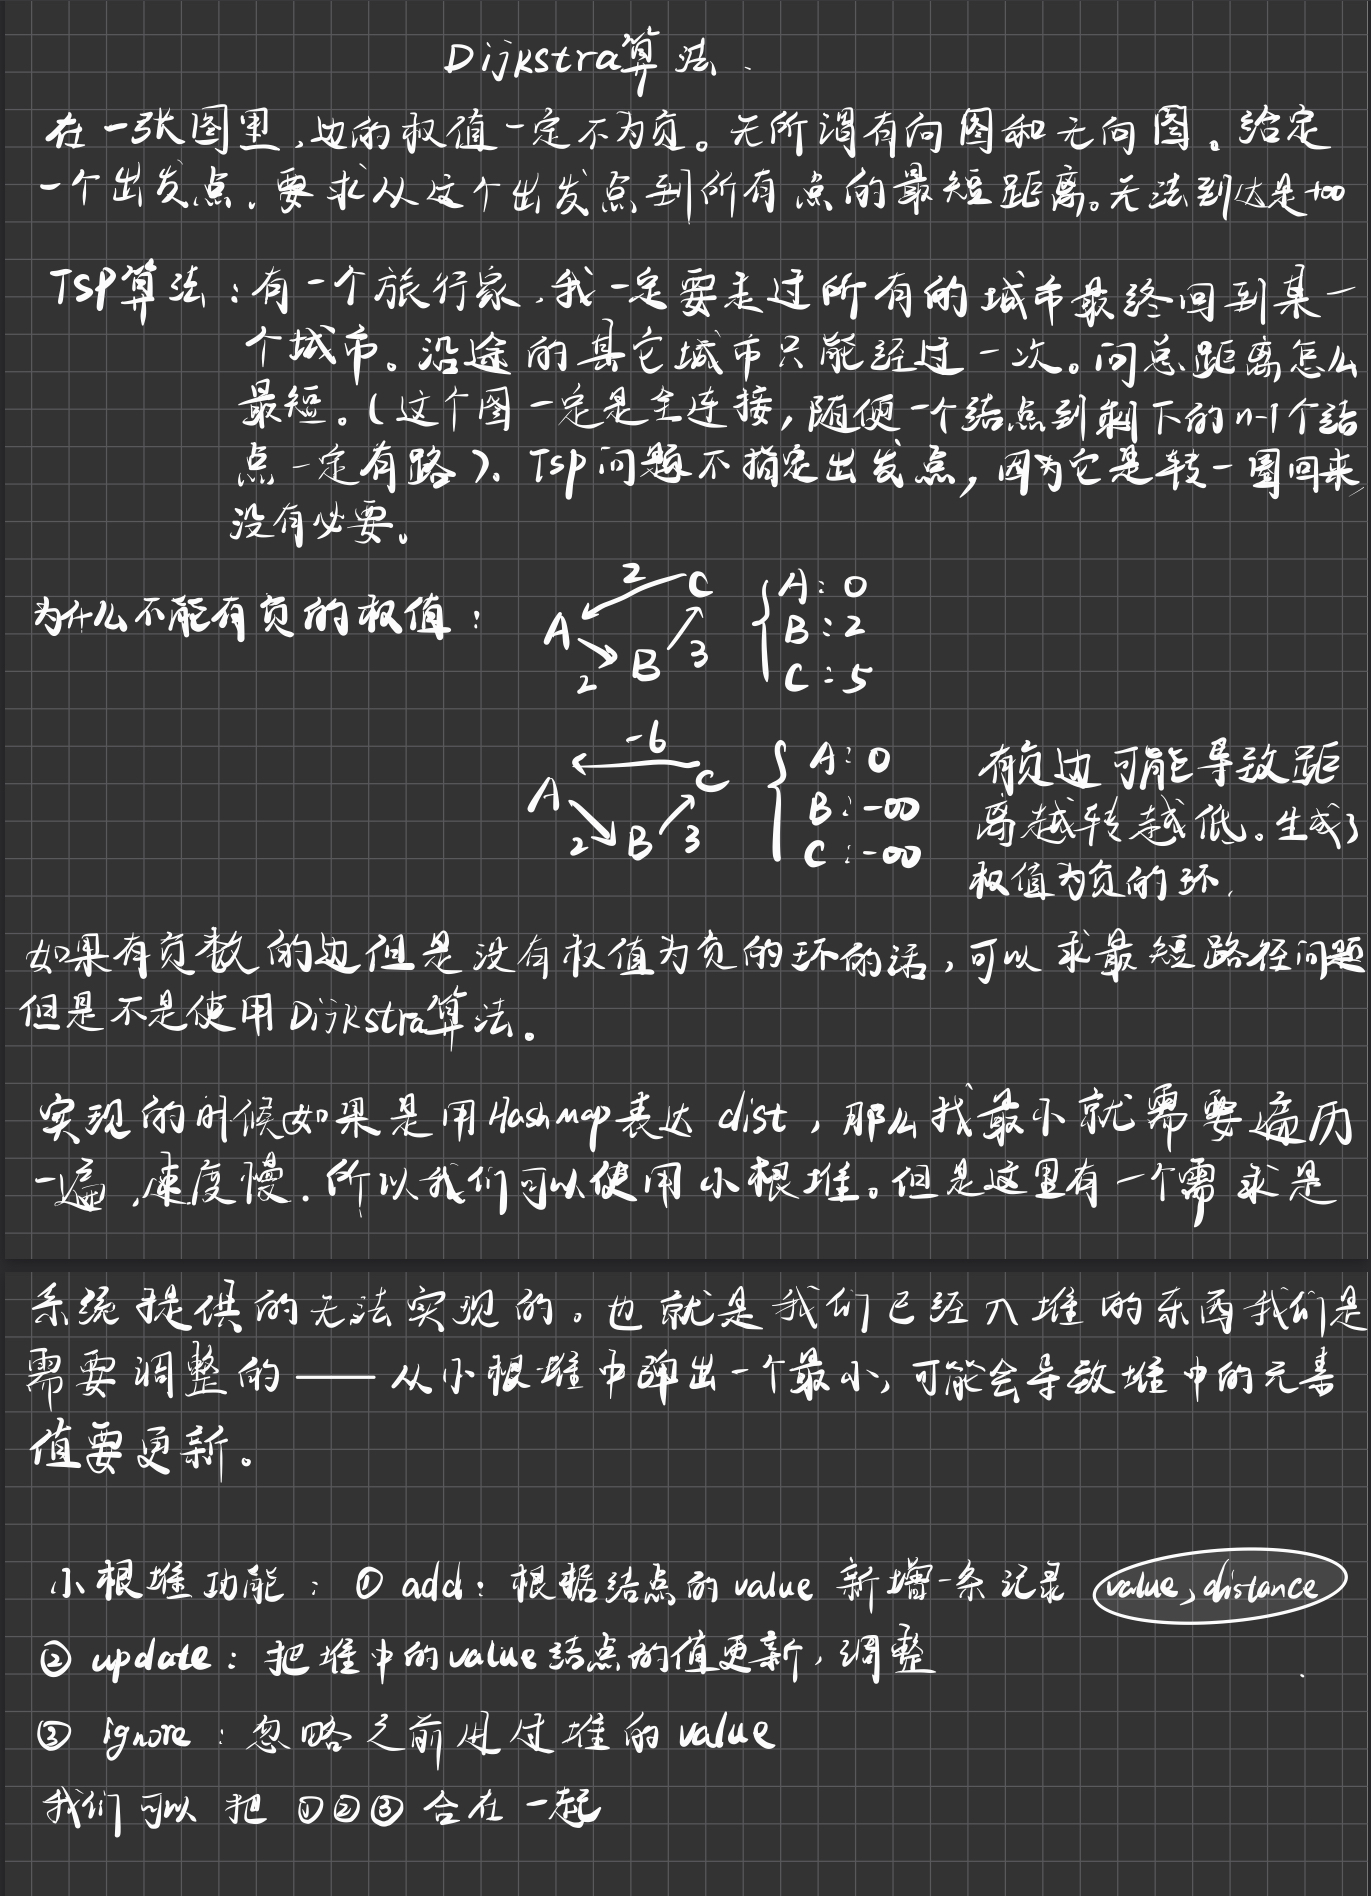 Dijkstra算法.
在一张图里,边的权值一定不为负。无所谓有向图和无向图。给定
一个出发点,要求从这个出发点到所有点的最短距离。无法到达是+∞
TSP算法:有一个旅行家,我一定要走过所有的城市最终回到某一
个城市。沿途的其它城市只能经过一次。问总距离怎么
最短。(这个图一定是全连接,随便一个结点到剩下的n-1个结
点一定有路)。TSP问题不指定出发点,因为它是转一圈回来,
没有必要。
为什么不能有负的权值:
2
C
A
B
2
3
A:0
B:2
C:5
-6
A
C
B
2
3
A:0
B:-∞
C:-∞
有负边可能导致距
离越转越低。生成了
权值为负的环.
如果有负数的边但是没有权值为负的环的话,可以求最短路径问题
但是不是使用Dijkstra算法。
实现的时候如果是用Hashmap表达dist,那么找最小就需要遍历
一遍,速度慢.所以我们可以使用小根堆。但是这里有一个需求是
系统提供的无法实现的。也就是我们已经入堆的东西我们是
需要调整的——从小根堆中弹出一个最小,可能会导致堆中的元素
值要更新。
小根堆功能:① add:根据结点的value新增一条记录 value,distance
② update:把堆中的value结点的值更新,调整
③ ignore:忽略之前进过堆的value
我们可以把①②③合在一起